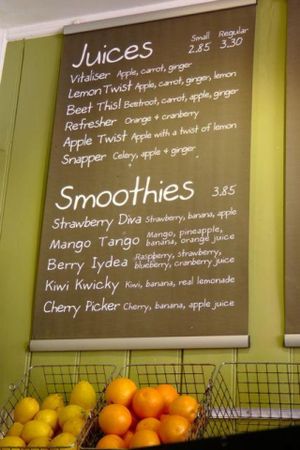 Juices Small Regular
2.85 3.30
Vitaliser Apple, carrot, ginger
Lemon Twist Apple, carrot, ginger, lemon
Beet This! Beetroot, carrot, apple, ginger
Refresher Orange + cranberry
Apple Twist Apple with a twist of lemon
Snapper Celery, apple + ginger
Smoothies 3.85
Strawberry Diva Strawberry, banana, apple
Mango Tango Mango, pineapple,
banana, orange juice
Berry Iydea Raspberry, strawberry,
blueberry, cranberry juice
Kiwi Kwicky Kiwi, banana, real lemonade
Cherry Picker Cherry, banana, apple juice